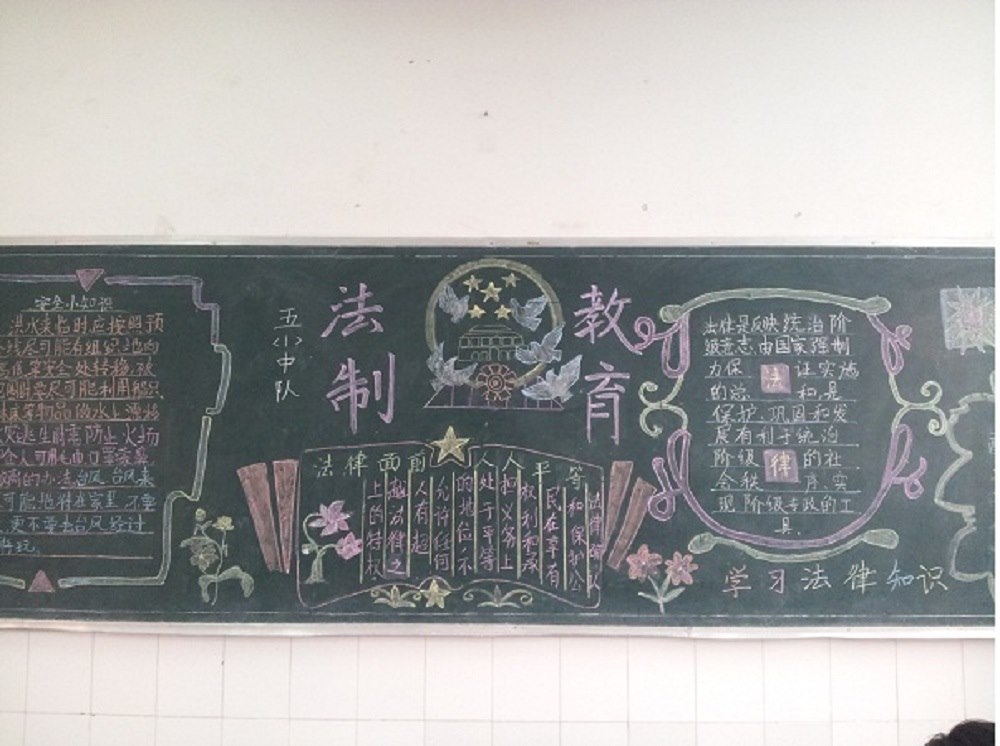 安全小知识
洪水来临时应按照预
线尽可能有组织地向
安全处转移
时要尽可能利用船只
等物品做水上漂移
灾逃生时需防止火扬
个人可用毛巾口罩
的办法 台风 台风来
可能地待在家里 不要
更不要去台风经过
五
(一)
中
队
法制
教育
法律面前人人平等
法律
和保护公
民在享有
权利和承
担义务上
处于平等
的地位 不
允许任何
人有超
越法律之
上的特权
法律是反映统治阶
级意志 由国家强制
力保 法 证实施
的总 和 是
保护 巩固和发
展有利于统治
阶级 律 的社
会秩 序 实
现 阶级专政的工
具
学习法律知识